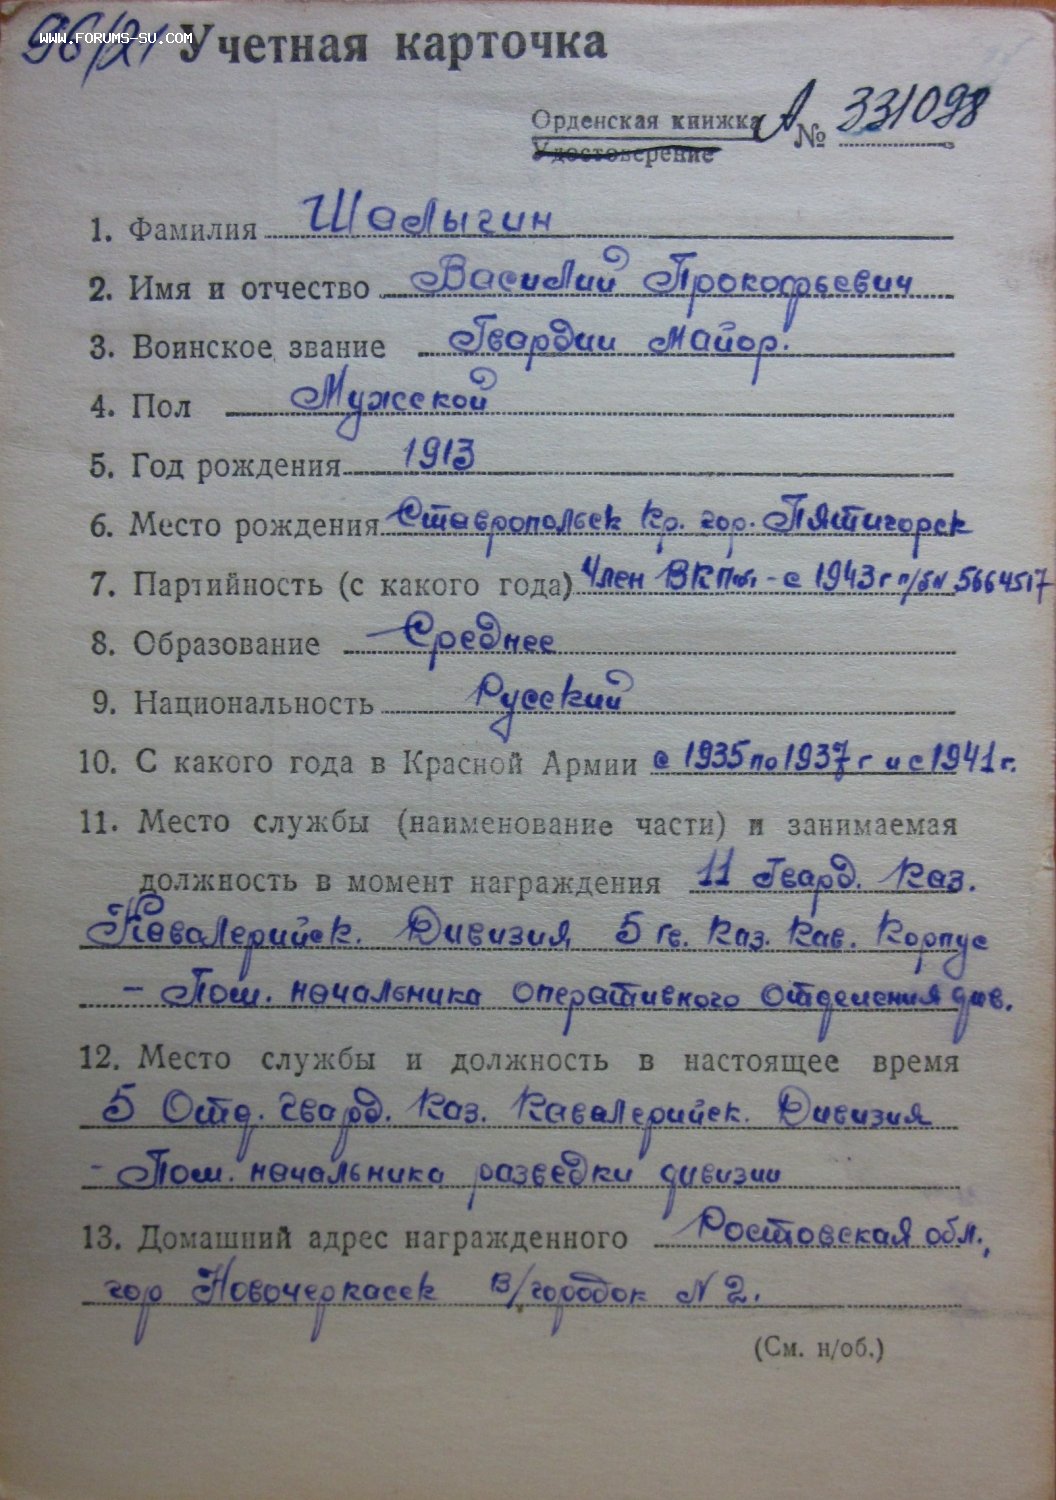 WWW.FORUMS-SU.COM
96/21 Учетная карточка
Орденская книжка А № 331098
Удостоверение
1. Фамилия Шалыгин
2. Имя и отчество Василий Прокофьевич
3. Воинское звание Гвардии майор.
4. Пол Мужской
5. Год рождения 1913
6. Место рождения Ставропольск кр. гор. Пятигорск
7. Партийность (с какого года) Член ВКП(б) - с 1943 г п/б N 5664517
8. Образование Среднее
9. Национальность Русский
10. С какого года в Красной Армии с 1935 по 1937 г и с 1941 г.
11. Место службы (наименование части) и занимаемая
должность в момент награждения 11 Гвард. Каз.
Кавалерийск. Дивизия 5 гв. Каз. Кав. Корпус
- Пом. начальника оперативного отделения див.
12. Место службы и должность в настоящее время
5 Отд. гвард. Каз. Кавалерийск. Дивизия
- Пом. начальника разведки дивизии
13. Домашний адрес награжденного Ростовская обл.,
гор Новочеркасск в/городок N 2.
(См. н/об.)